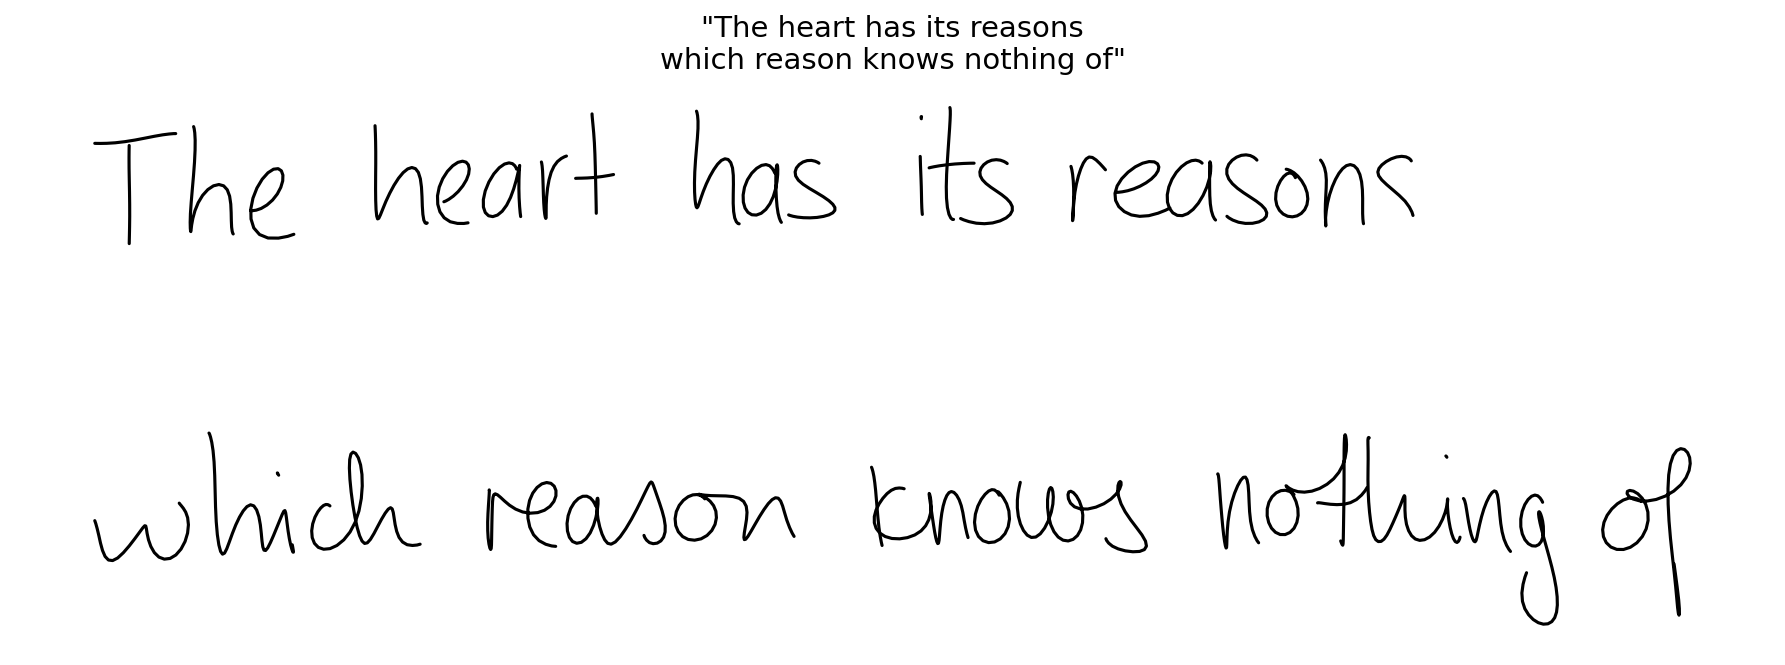 "The heart has its reasons
which reason knows nothing of"
The heart has its reasons
which reason knows nothing of